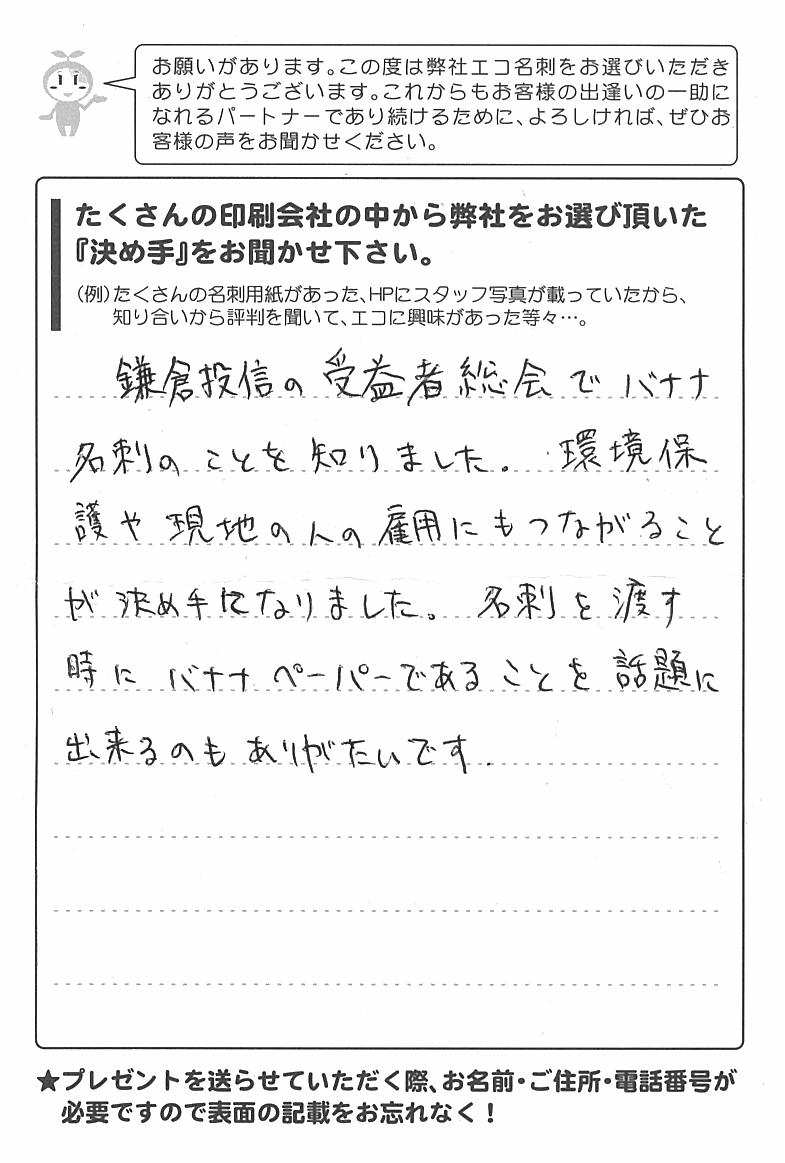 お願いがあります。この度は弊社エコ名刺をお選びいただき
ありがとうございます。これからもお客様の出逢いの一助に
なれるパートナーであり続けるために、よろしければ、ぜひお
客様の声をお聞かせください。
たくさんの印刷会社の中から弊社をお選び頂いた
『決め手』をお聞かせ下さい。
（例）たくさんの名刺用紙があった、HPにスタッフ写真が載っていたから、
知り合いから評判を聞いて、エコに興味があった等々…。
鎌倉投信の受益者総会でバナナ
名刺のことを知りました。環境保
護や現地の人の雇用にもつながること
が決め手になりました。名刺を渡す
時にバナナペーパーであることを話題に
出来るのもありがたいです.
★プレゼントを送らせていただく際、お名前・ご住所・電話番号が
必要ですので表面の記載をお忘れなく！